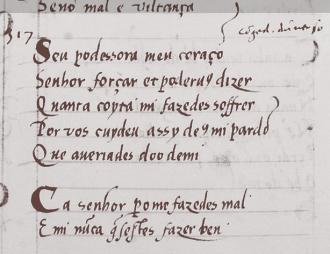 Senō mal e viltança
congad. diuerso
317
Seu podessora meu coraço
Senhor forçar et poderuꝯ dizer
Quanta coyta mi fazedes soffrer
Por vos cuydeu assy deꝯ mi pardō
Que aueriades doo demi
Ca senhor pome fazedes mal
E mi nūca q̄sestes fazer ben